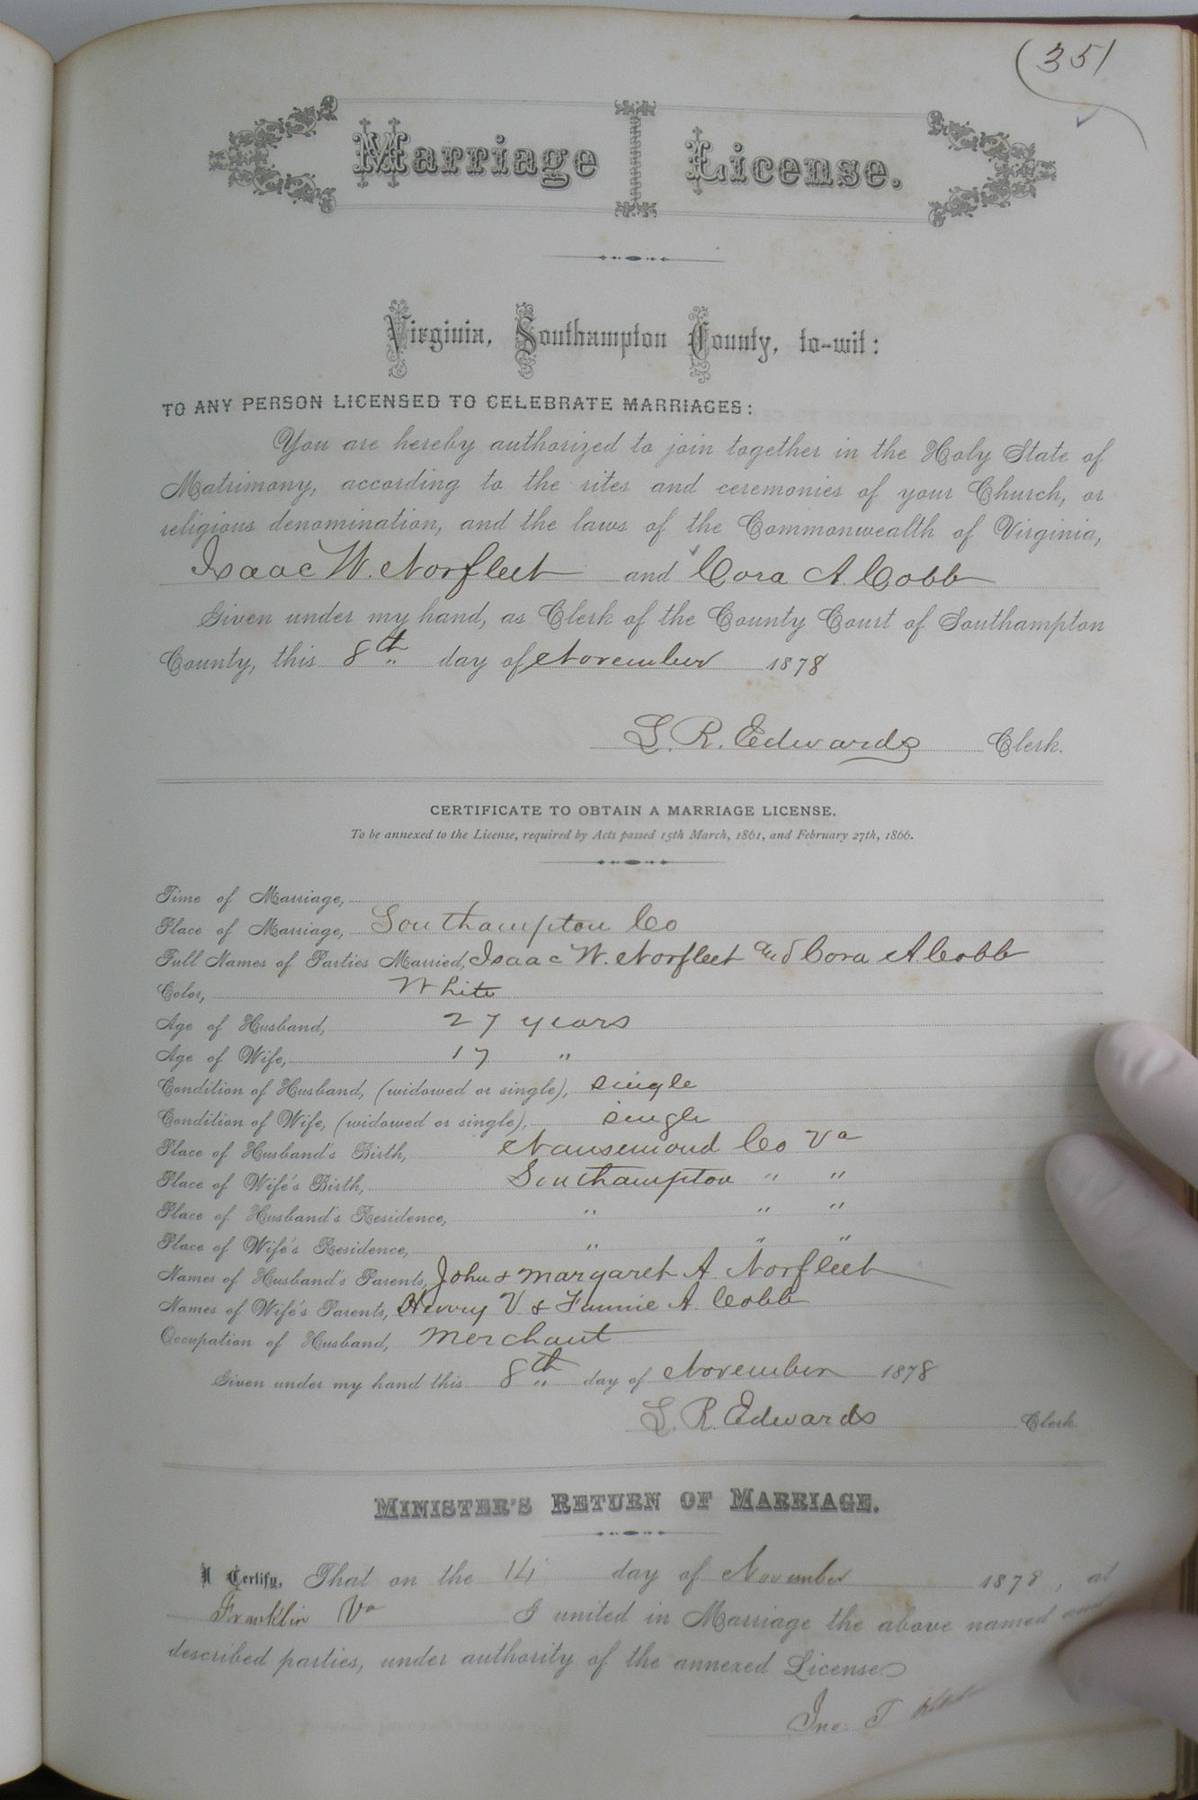 (351
Marriage License.
Virginia, Southampton County, to-wit:
TO ANY PERSON LICENSED TO CELEBRATE MARRIAGES:
You are hereby authorized to join together in the Holy State of
Matrimony, according to the rites and ceremonies of your Church, or
religious denomination, and the laws of the Commonwealth of Virginia,
Isaac W. Norfleet and Cora A. Cobb
Given under my hand, as Clerk of the County Court of Southampton
County, this 8th day of November 1878
L. R. Edwards Clerk.
CERTIFICATE TO OBTAIN A MARRIAGE LICENSE.
To be annexed to the License, required by Acts passed 15th March, 1861, and February 27th, 1866.
Time of Marriage,
Place of Marriage, Southampton Co
Full Names of Parties Married, Isaac W. Norfleet and Cora A. Cobb
Color, White
Age of Husband, 27 years
Age of Wife, 17 "
Condition of Husband, (widowed or single), single
Condition of Wife, (widowed or single), single
Place of Husband's Birth, Nansemond Co Va
Place of Wife's Birth, Southampton " "
Place of Husband's Residence, " " "
Place of Wife's Residence, " " "
Names of Husband's Parents, John & Margaret A. Norfleet
Names of Wife's Parents, Henry V. & Fannie A. Cobb
Occupation of Husband, Merchant
Given under my hand this 8th day of November 1878
L. R. Edwards Clerk
MINISTER'S RETURN OF MARRIAGE.
I Certify, That on the 14 day of November 1878, at
Franklin Va I united in Marriage the above named and
described parties, under authority of the annexed License
Jno. T.